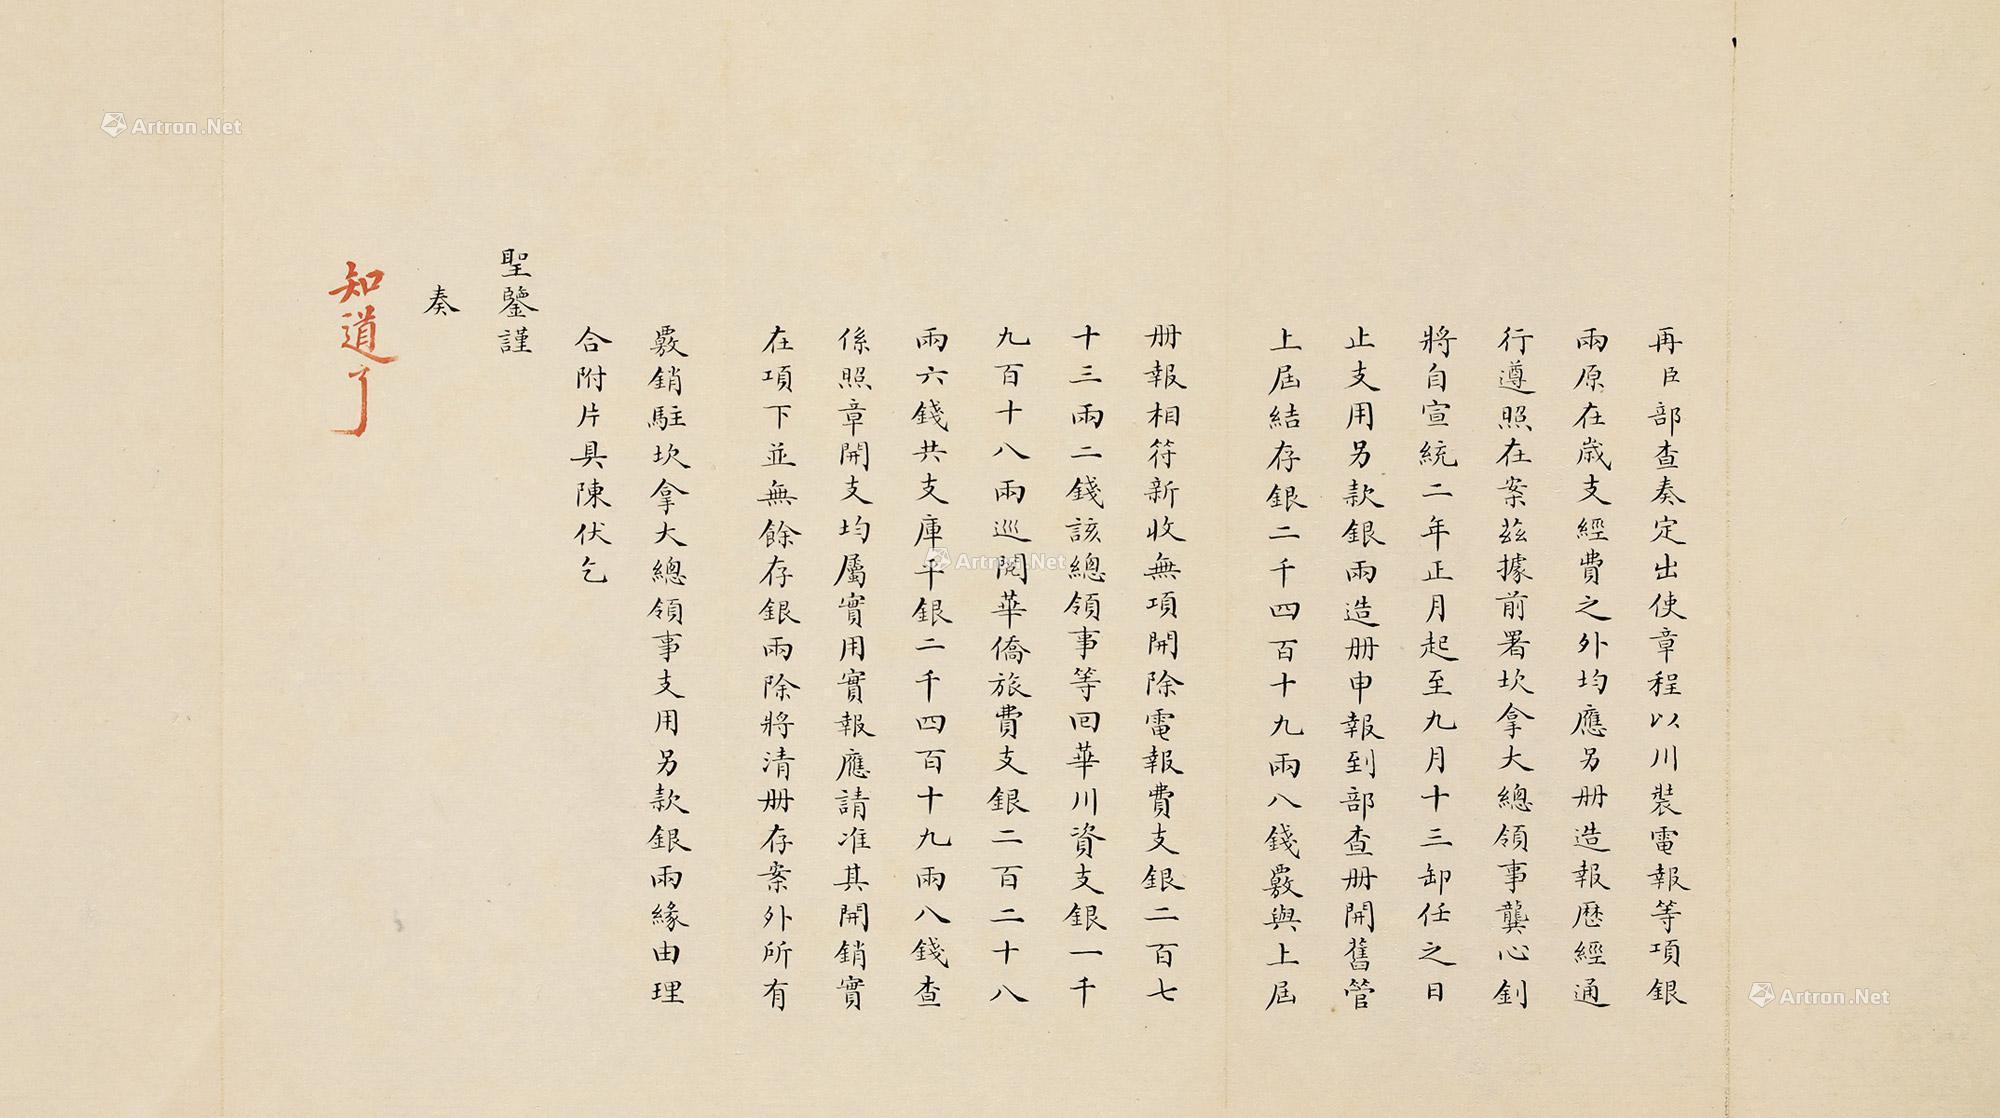 再臣部查奏定出使章程以川裝電報等項銀
兩原在歲支經費之外均應另册造報歷經通
行遵照在案茲據前署坎拿大總領事龔心釗
將自宣統二年正月起至九月十三卸任之日
止支用另款銀兩造册申報到部查册開舊管
上屆結存銀二千四百十九兩八錢覈與上屆
册報相符新收無項開除電報費支銀二百七
十三兩二錢該總領事等回華川資支銀一千
九百十八兩巡閱華僑旅費支銀二百二十八
兩六錢共支庫平銀二千四百十九兩八錢查
係照章開支均屬實用實報應請准其開銷實
在項下並無餘存銀兩除將清册存案外所有
覈銷駐坎拿大總領事支用另款銀兩緣由理
合附片具陳伏乞
聖鑒謹
奏
知道了
Artron.Net
Artron.Net
Artron.Net